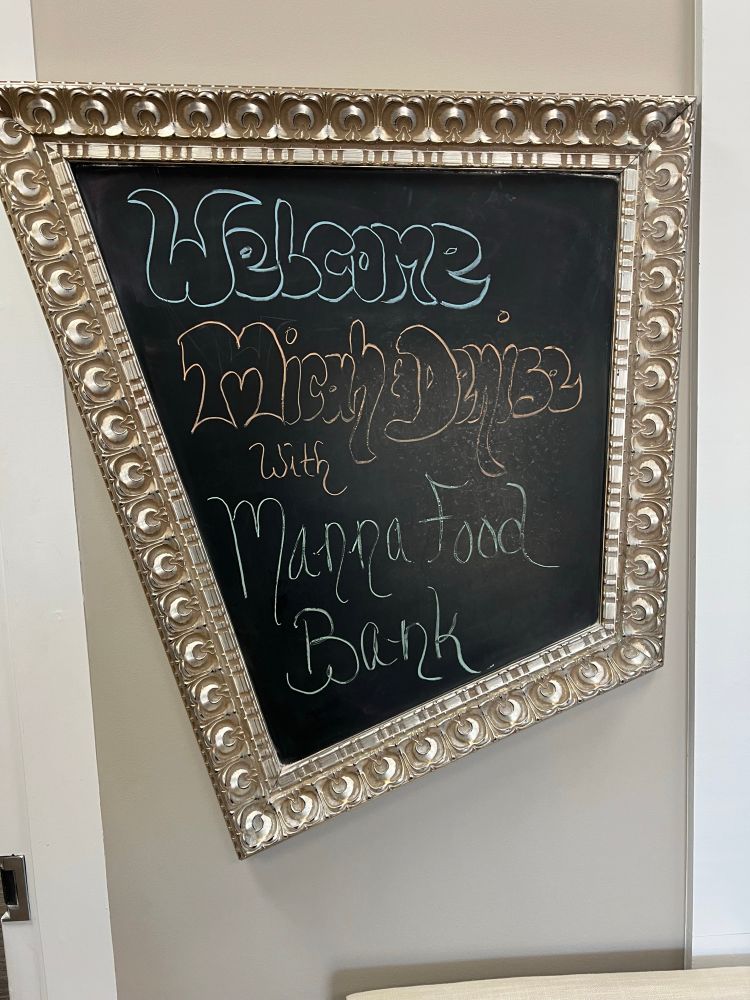 Welcome
Micah & Denise
With
Manna Food
Bank